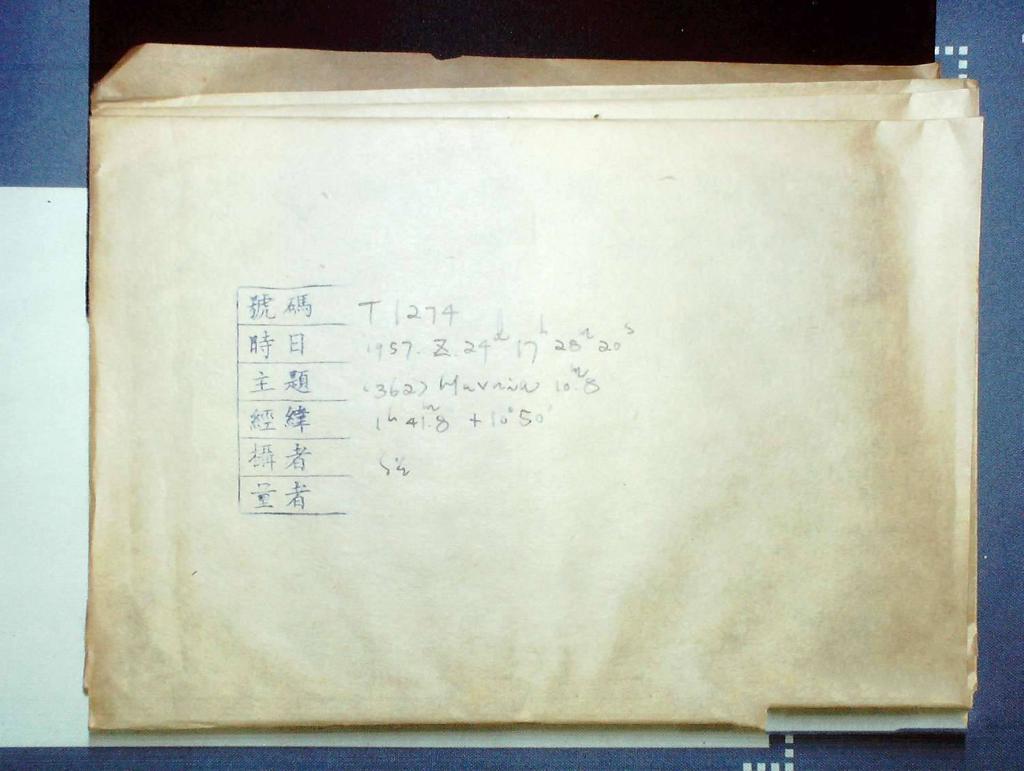 號碼 T 1274
時日 1957. Z. 24ᵈ 17ʰ 28ᵐ 20ˢ
主題 (362) Havnia 10ᵐ.8
經緯 1ʰ 41ᵐ.8 + 10°50'
攝者
量者